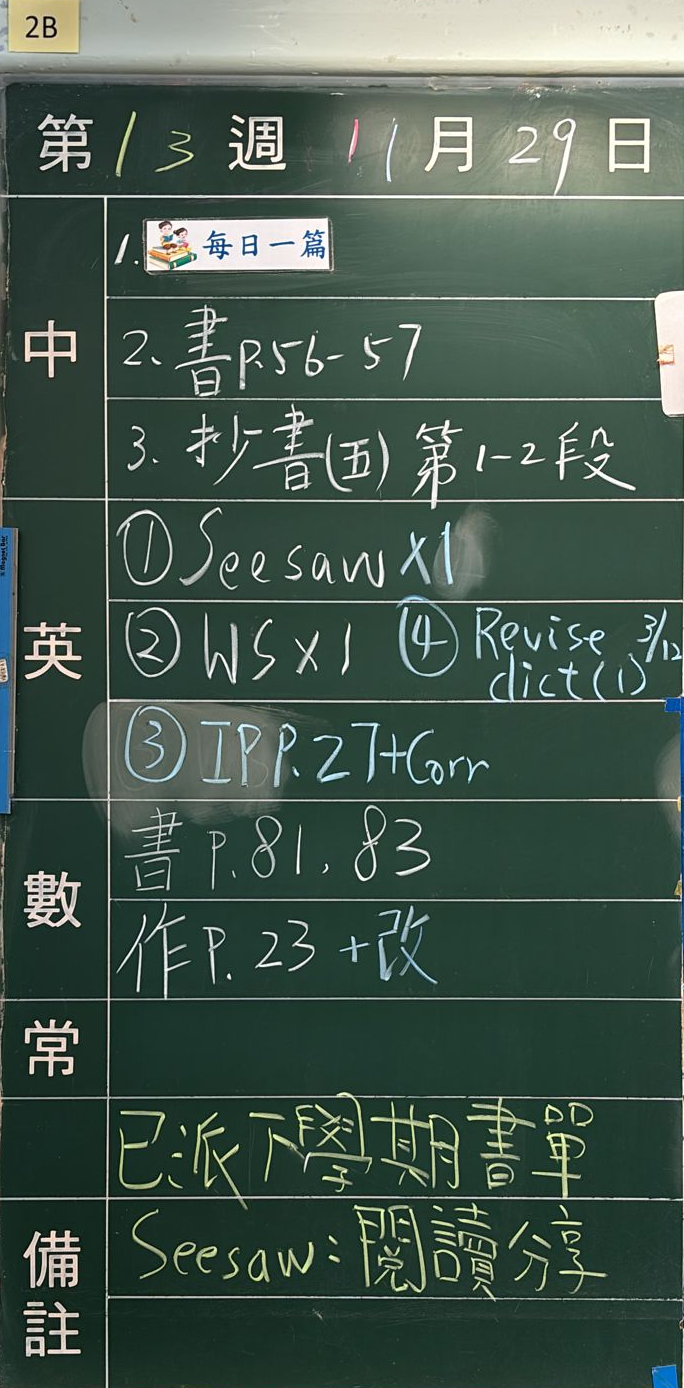 2B
第13週 11月29日
中
1. 每日一篇
2. 書P.56-57
3. 抄書(五)第1-2段
英
①Seesaw x1
②WS x1 ④Revise 3/12
dict(1)
③IP P.27+Corr
數
書P.81, 83
作P.23 +改
常
已派下學期書單
備註
Seesaw:閱讀分享